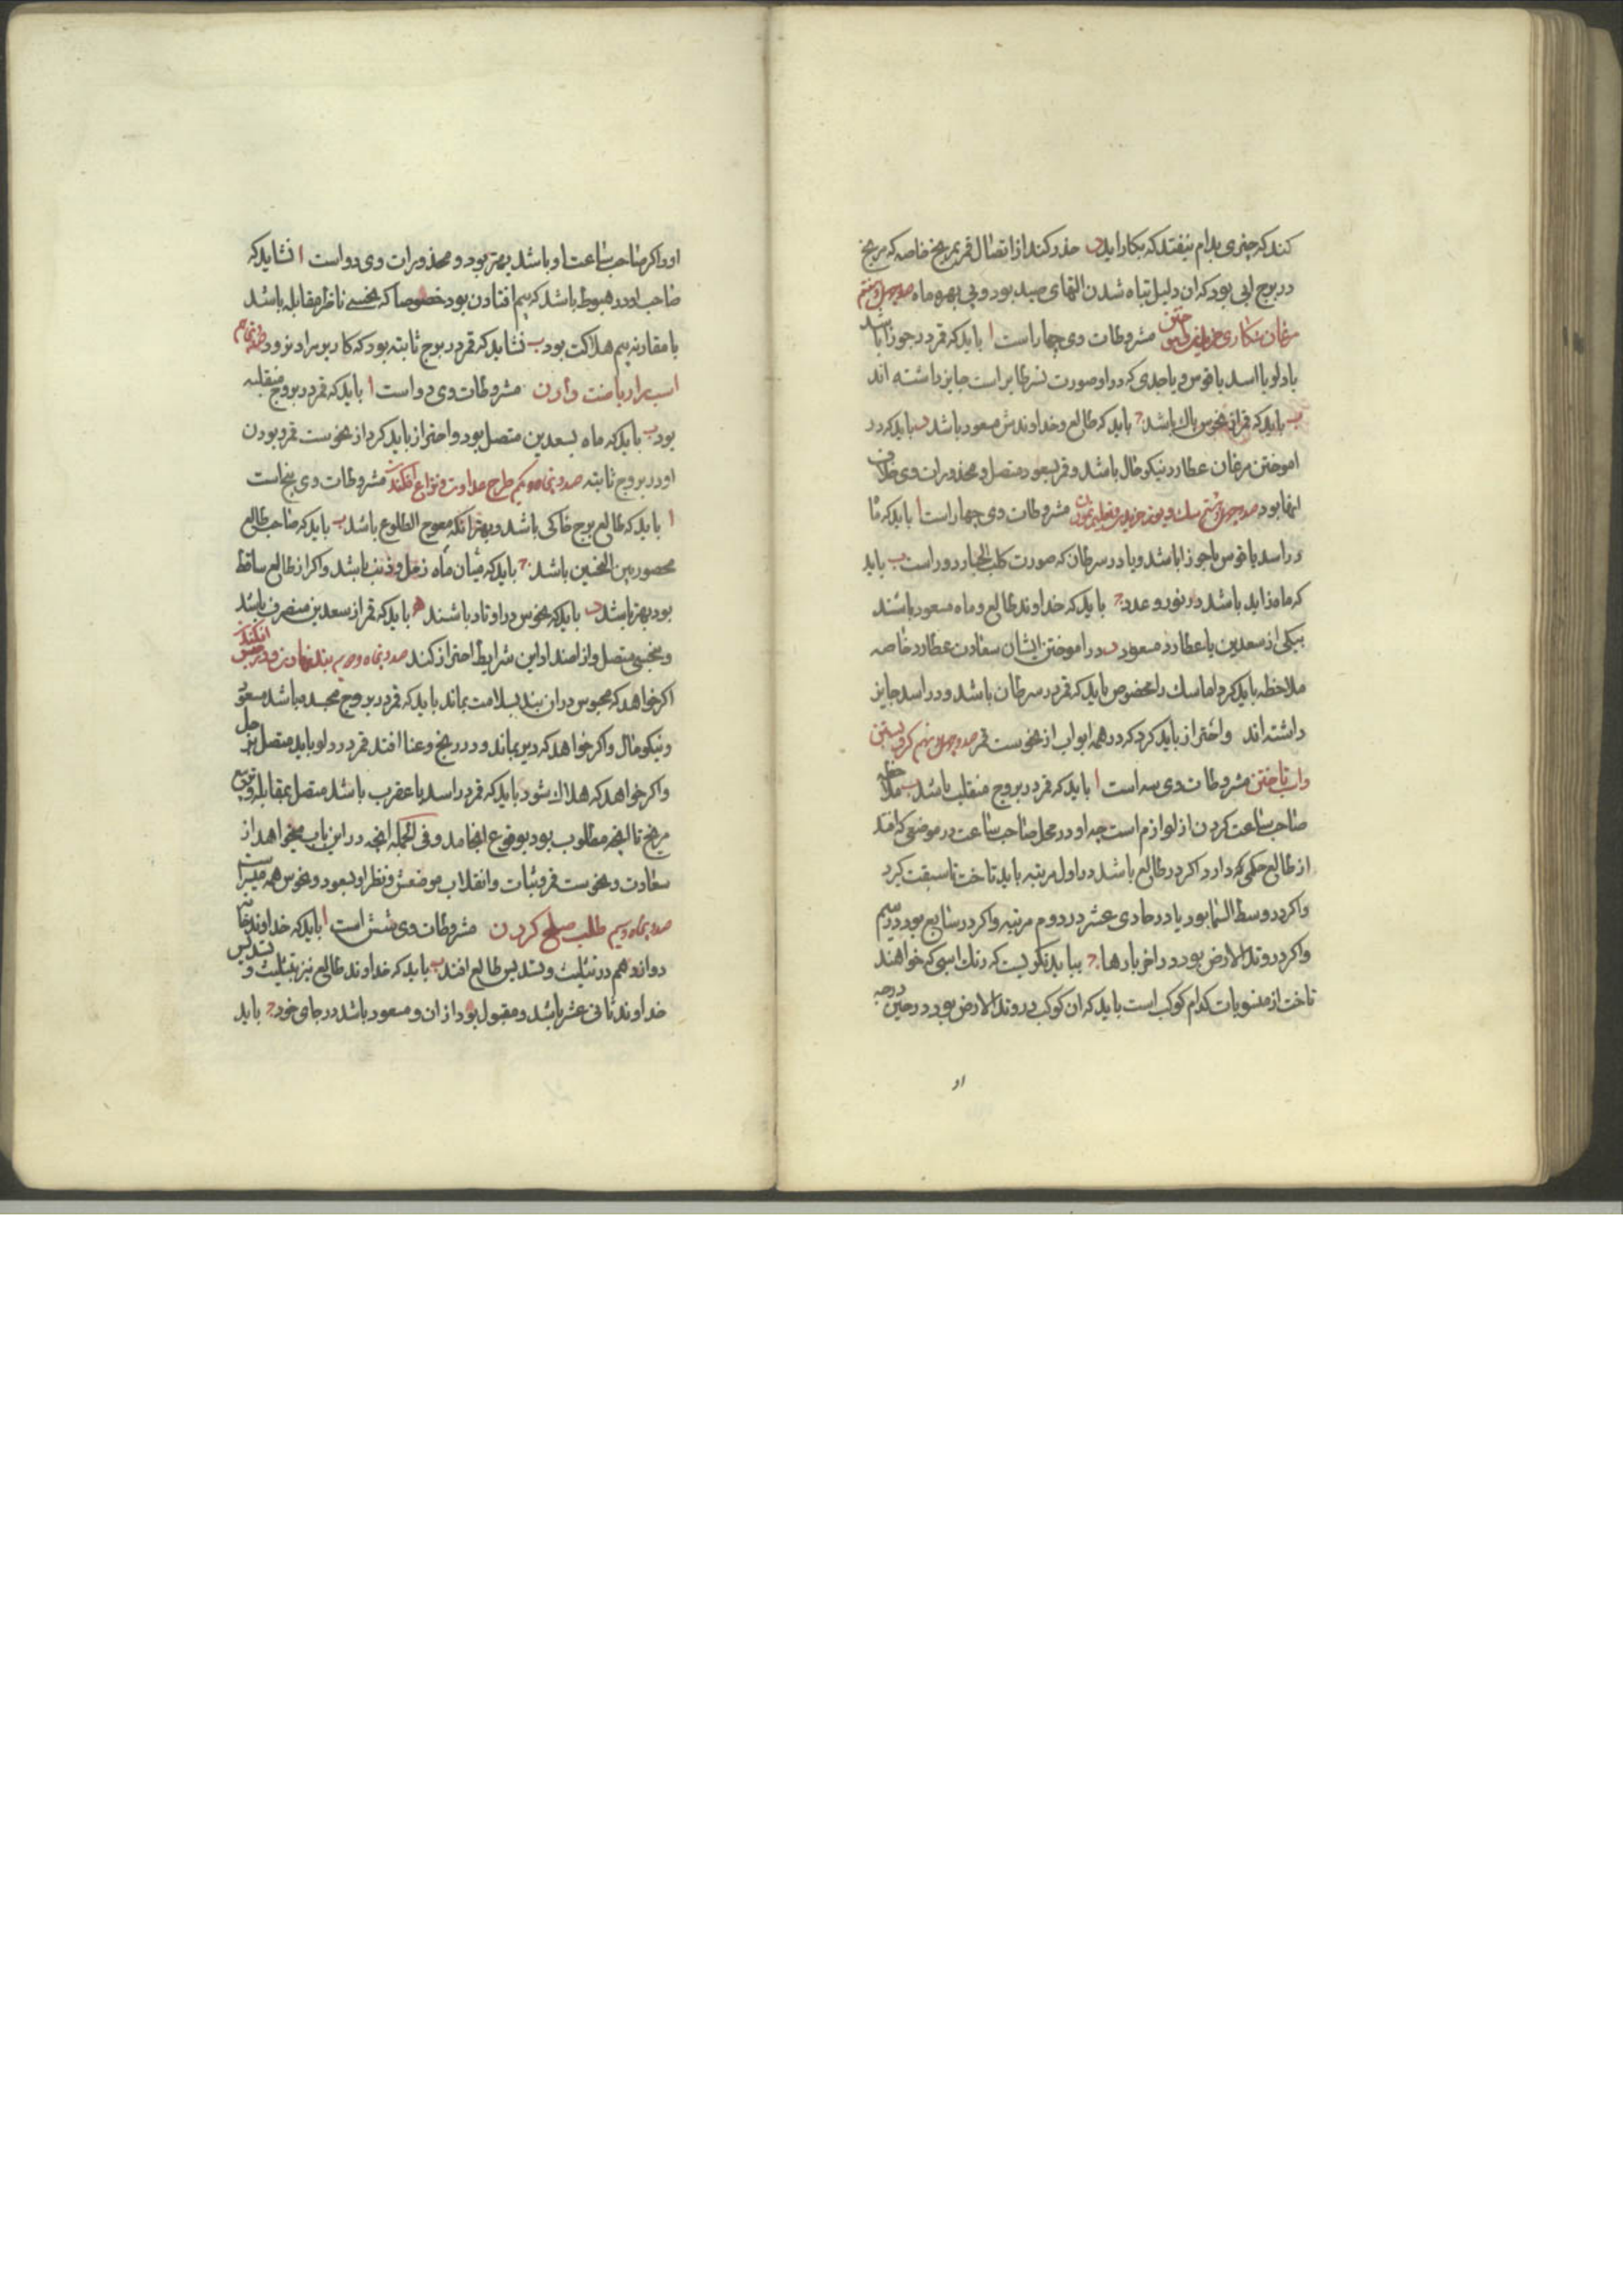 کند که چیزی بدام نیفتد که بکار اید د حذر کند از اتصال قمر بمریخ خاصه که مریخ
در برج ابی بود که ان دلیل تباه شدن التهای صید بود و بی بهره ماه صد و چهل و هفتم
مرغان شکاری مشروطات وی چهار است ا باید که قمر در جوزا باشد
یا دلو یا اسد یا قوس و یا جدی که در او صورت نسر طایر است جایز داشته اند
ب باید که قمر از نحوس پاک باشد ج باید که طالع و خداوندش مسعود باشد د باید که در
اموختن مرغان عطارد نیکو حال باشد و قمر بسعود متصل و محذورات وی خلاف
اینها بود صد و چهل و هشتم سک و یوز خریدن و تعلیم مشروطات وی چهار است ا باید که ما
در اسد یا قوس یا جوزا باشد و یا در سرطان که صورت کلب الجبار در و راست ب باید
که ماه زاید باشد در نور و عدد ج باید که خداوند طالع و ماه مسعود باشند
بیکی از سعدین یا عطارد مسعود د در اموختن ایشان سعادت عطارد خاصه
ملاحظه باید کرد اما سک را مخصوص باید که قمر در سرطان باشد و در اسد جایز
داشته اند واحتراز باید کرد که در همه ابواب از نحوست قمر صد و چهل و نهم کرو بستن
واسب تاختن مشروطات وی سه است ا باید که قمر در بروج منقلب باشد ب ملاحظه
صاحب ساعت کردن از لوازم است چه او در محل صاحب ساعت در موضعی که افتد
از طالع حکمی که دارد اکر در طالع باشد در اول مرتبه باید تاخت تا سبقت کیرد
واکر در وسط السما بود یا در حادی عشر در دوم مرتبه واکر در سابع بود در سیم
واکر در وتد الارض بود در اخر بارها ج بباید نکریست که رنک اسبی که خواهند
تاخت از منسوبات کدام کوکب است باید که ان کوکب در وتد الارض بود در حین درجه
او
او واکر صاحب ساعت او باشد بهتر بود و محذورات وی دو است ا نشاید که
صاحب او در هبوط باشد که بیم افتادن بود خصوصا که نحسی ناظر مقابله باشد
یا مقارنه بیم هلاکت بود ب نشاید که قمر در برج ثابته بود که کار بر مراد نرود
اسب را ریاضت دادن مشروطات وی دو است ا باید که قمر در بروج منقلبه
بود ب باید که ماه بسعدین متصل بود و احتراز باید کرد از نحوست قمر و بودن
او در بروج ثابته صد و پنجاه و یکم طرح عداوت و نزاع افکند مشروطات وی پنج است
ا باید که طالع برج خاکی باشد و بهتر انکه معوج الطلوع باشد ب باید که صاحب طالع
محصور بین النحسین باشد ج باید که میان ماه زحل و ذنب باشد واکر از طالع ساقط
بود بهتر باشد د باید که نحوس در اوتاد باشند ه باید که قمر از سعدین منصرف باشد
و بنحسی متصل و از اضداد این شرایط احتراز کند صد و پنجاه و دویم بند نهادن و در حبس افکندن
اکر خواهد که محبوس در ان بند بسلامت بماند باید که قمر در بروج مجسده باشد مسعود
و نیکو حال واکر خواهد که دیر بماند و در رنج و عنا افتد قمر در دلو باید متصل بزحل
واکر خواهد که هلاک شود باید که قمر در اسد یا عقرب باشد متصل بمقابله و تربیع
مریخ تا انچه مطلوب بود بوقوع انجامد و فی الجمله انچه در این باب میخواهد از
سعادت و نحوست قمر و ثبات و انقلاب موضعش و نظر او بسعود و نحوس همه میسر است
صد و پنجاه و سیم طلب صلح کردن مشروطات وی شش است ا باید که خداوند خانه
دوازدهم در تثلیث و تسدیس طالع افتد ب باید که خداوند طالع نیز بتثلیث و تسدیس
خداوند ثانی عشر باشد و مقبول بود از ان و مسعود باشد در جای خود ج باید